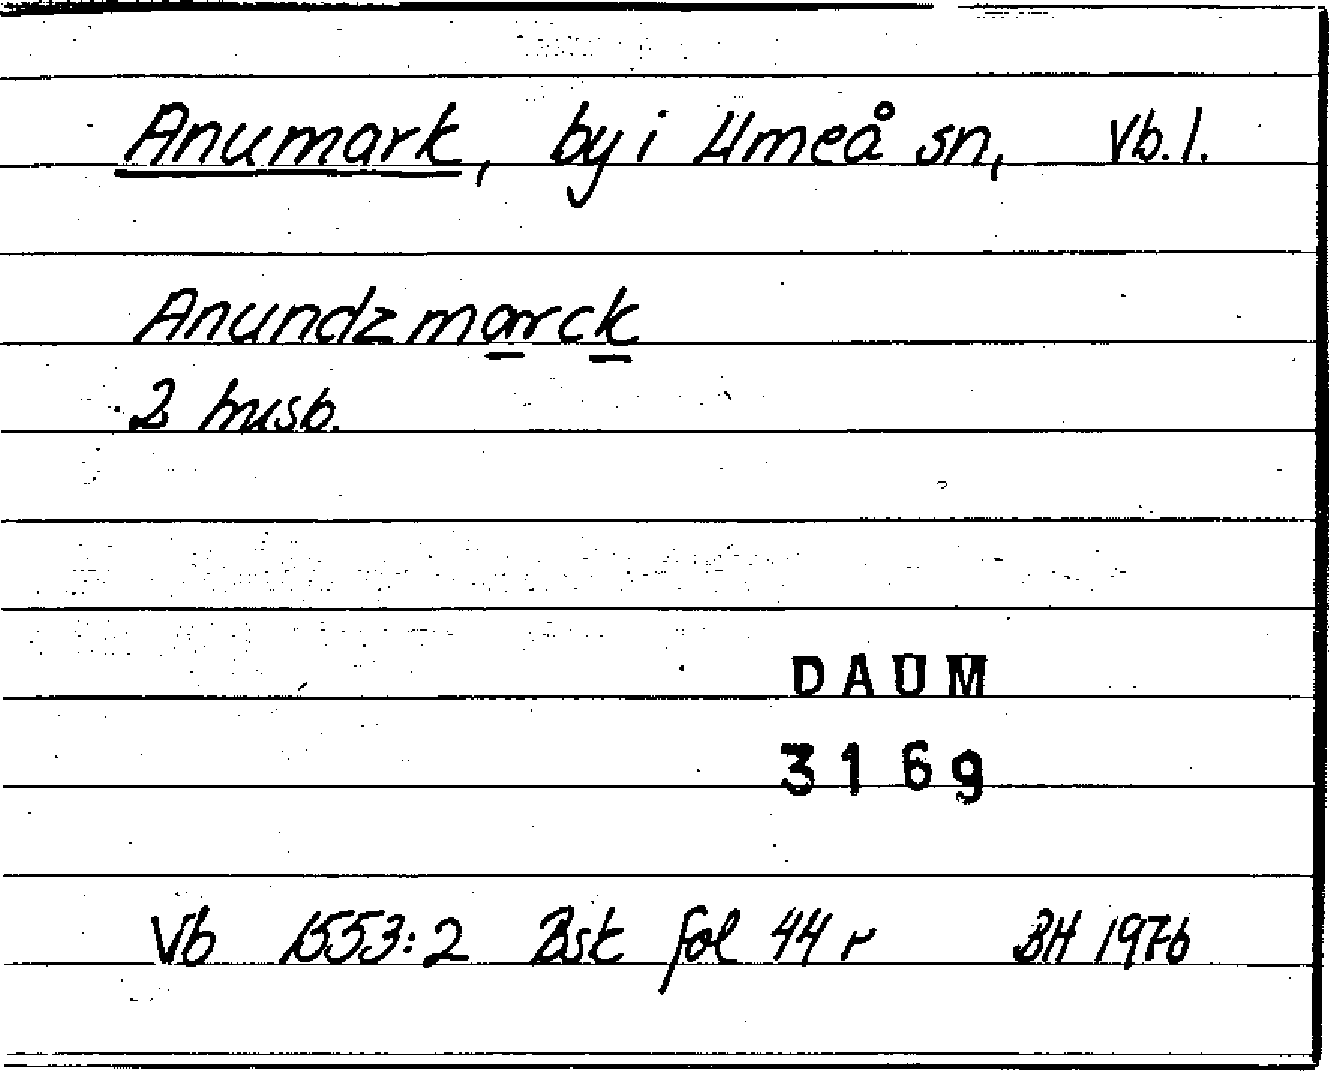 Anumark, by i Umeå sn, Vb. l.
Anundzmarck
2 husb.
DAUM
3169
Vb 1553:2 Bsk fol 44 r BH 1976